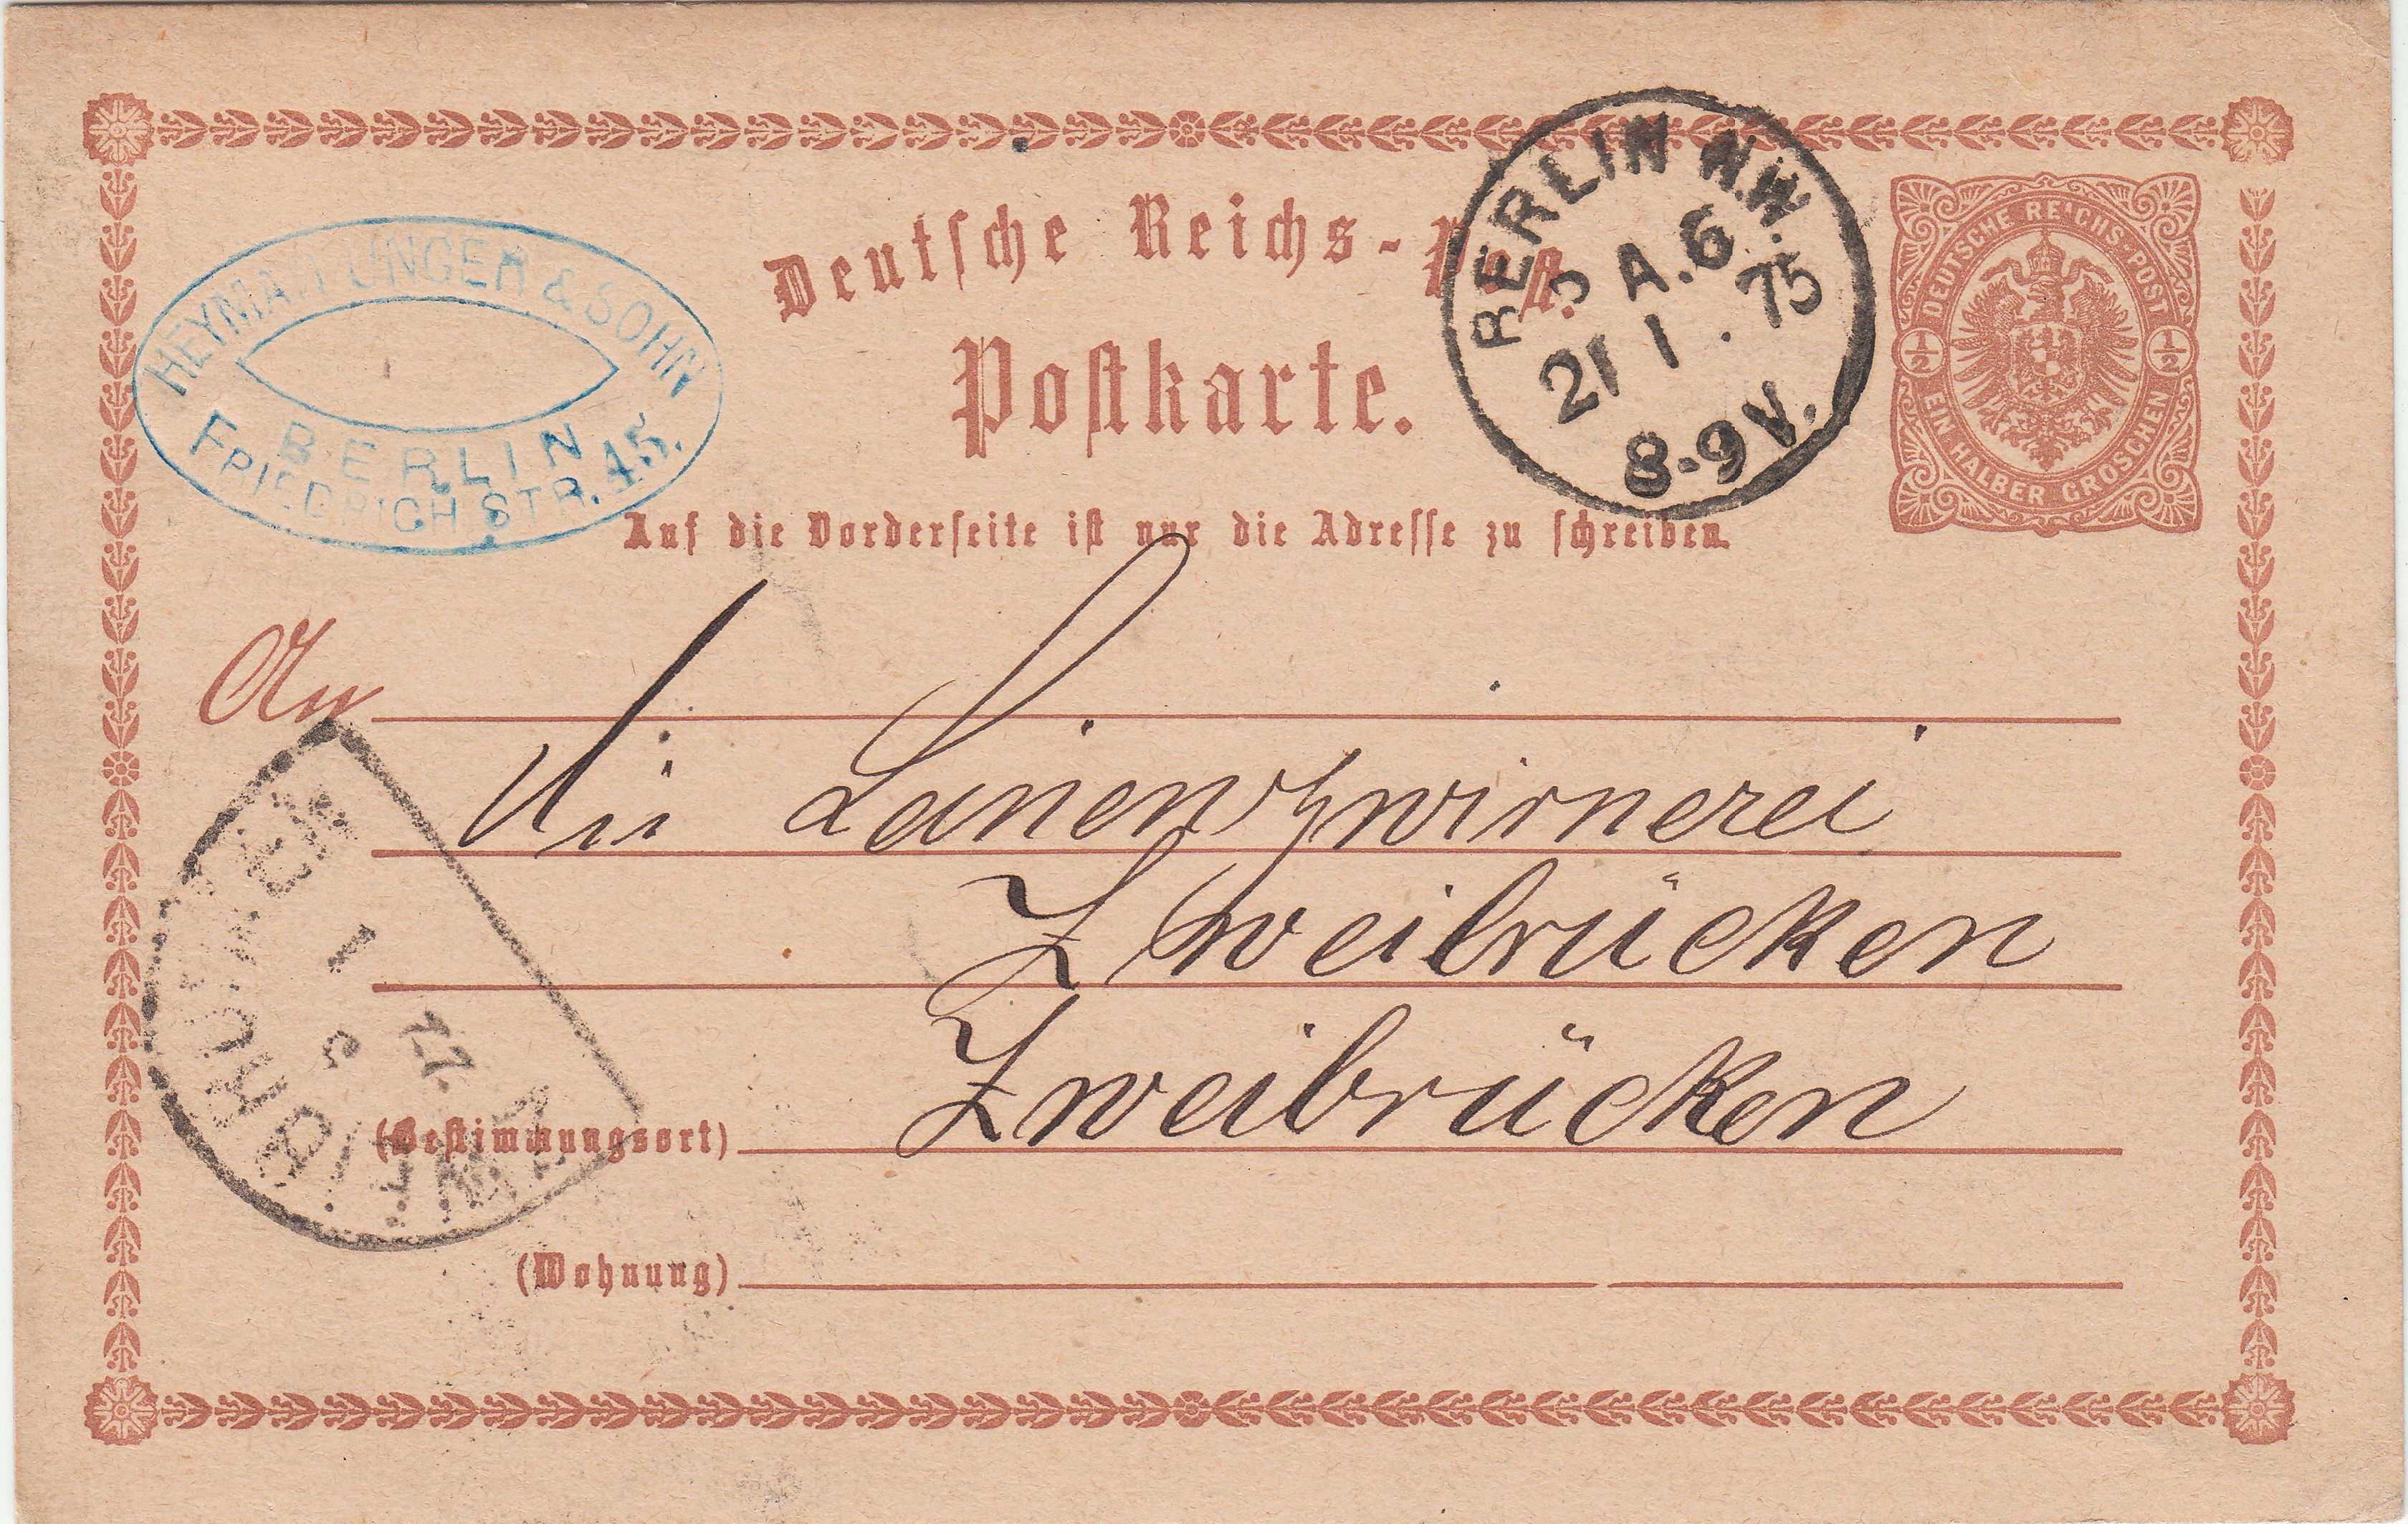 Deutsche Reichs-Post.
HEYMAN UNGER & SOHN
BERLIN
FRIEDRICH STR. 45.
BERLIN N.W.
A.6
21 1 . 75
8-9V.
DEUTSCHE REICHS-POST
1/2 1/2
EIN HALBER GROSCHEN
Postkarte.
Auf die Vorderseite ist nur die Adresse zu schreiben.
An
die Leinenzwirnerei
Zweibrücken
(Bestimmungsort) Zweibrücken
(Wohnung)
ZWEIBRÜCKEN
22
1